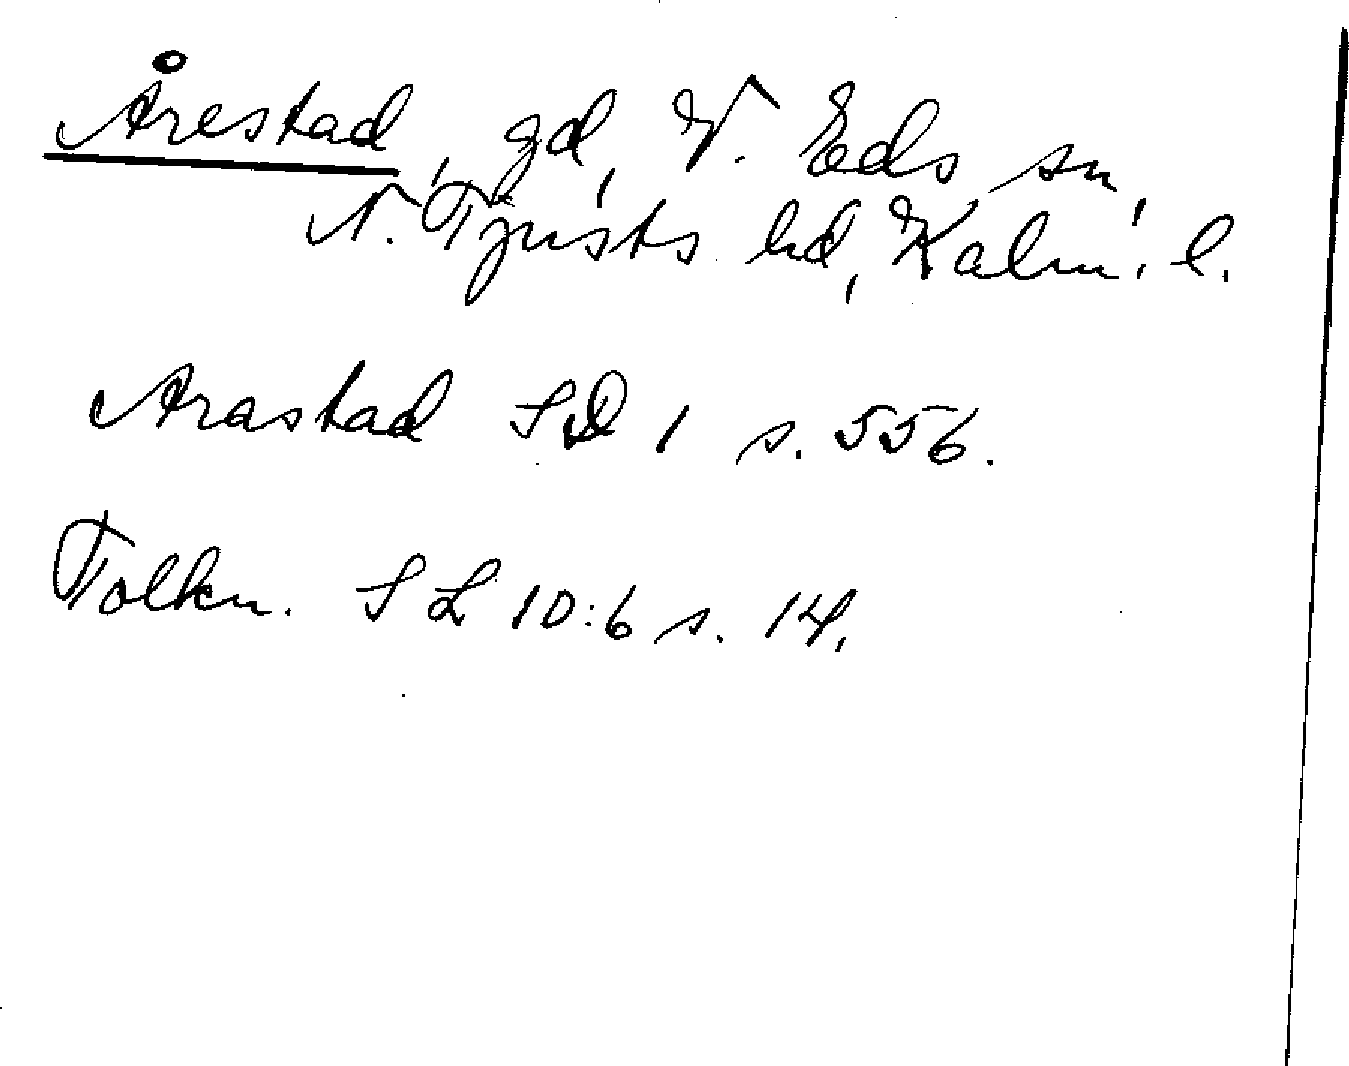 Årestad, gd, V. Eds sn,
N. Tjusts hd, Kalm. l.
Arastad SD 1 s. 556.
Folkn. SL 10:6 s. 14.